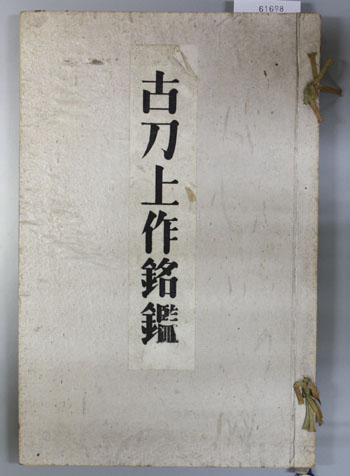 61698
古刀上作銘鑑